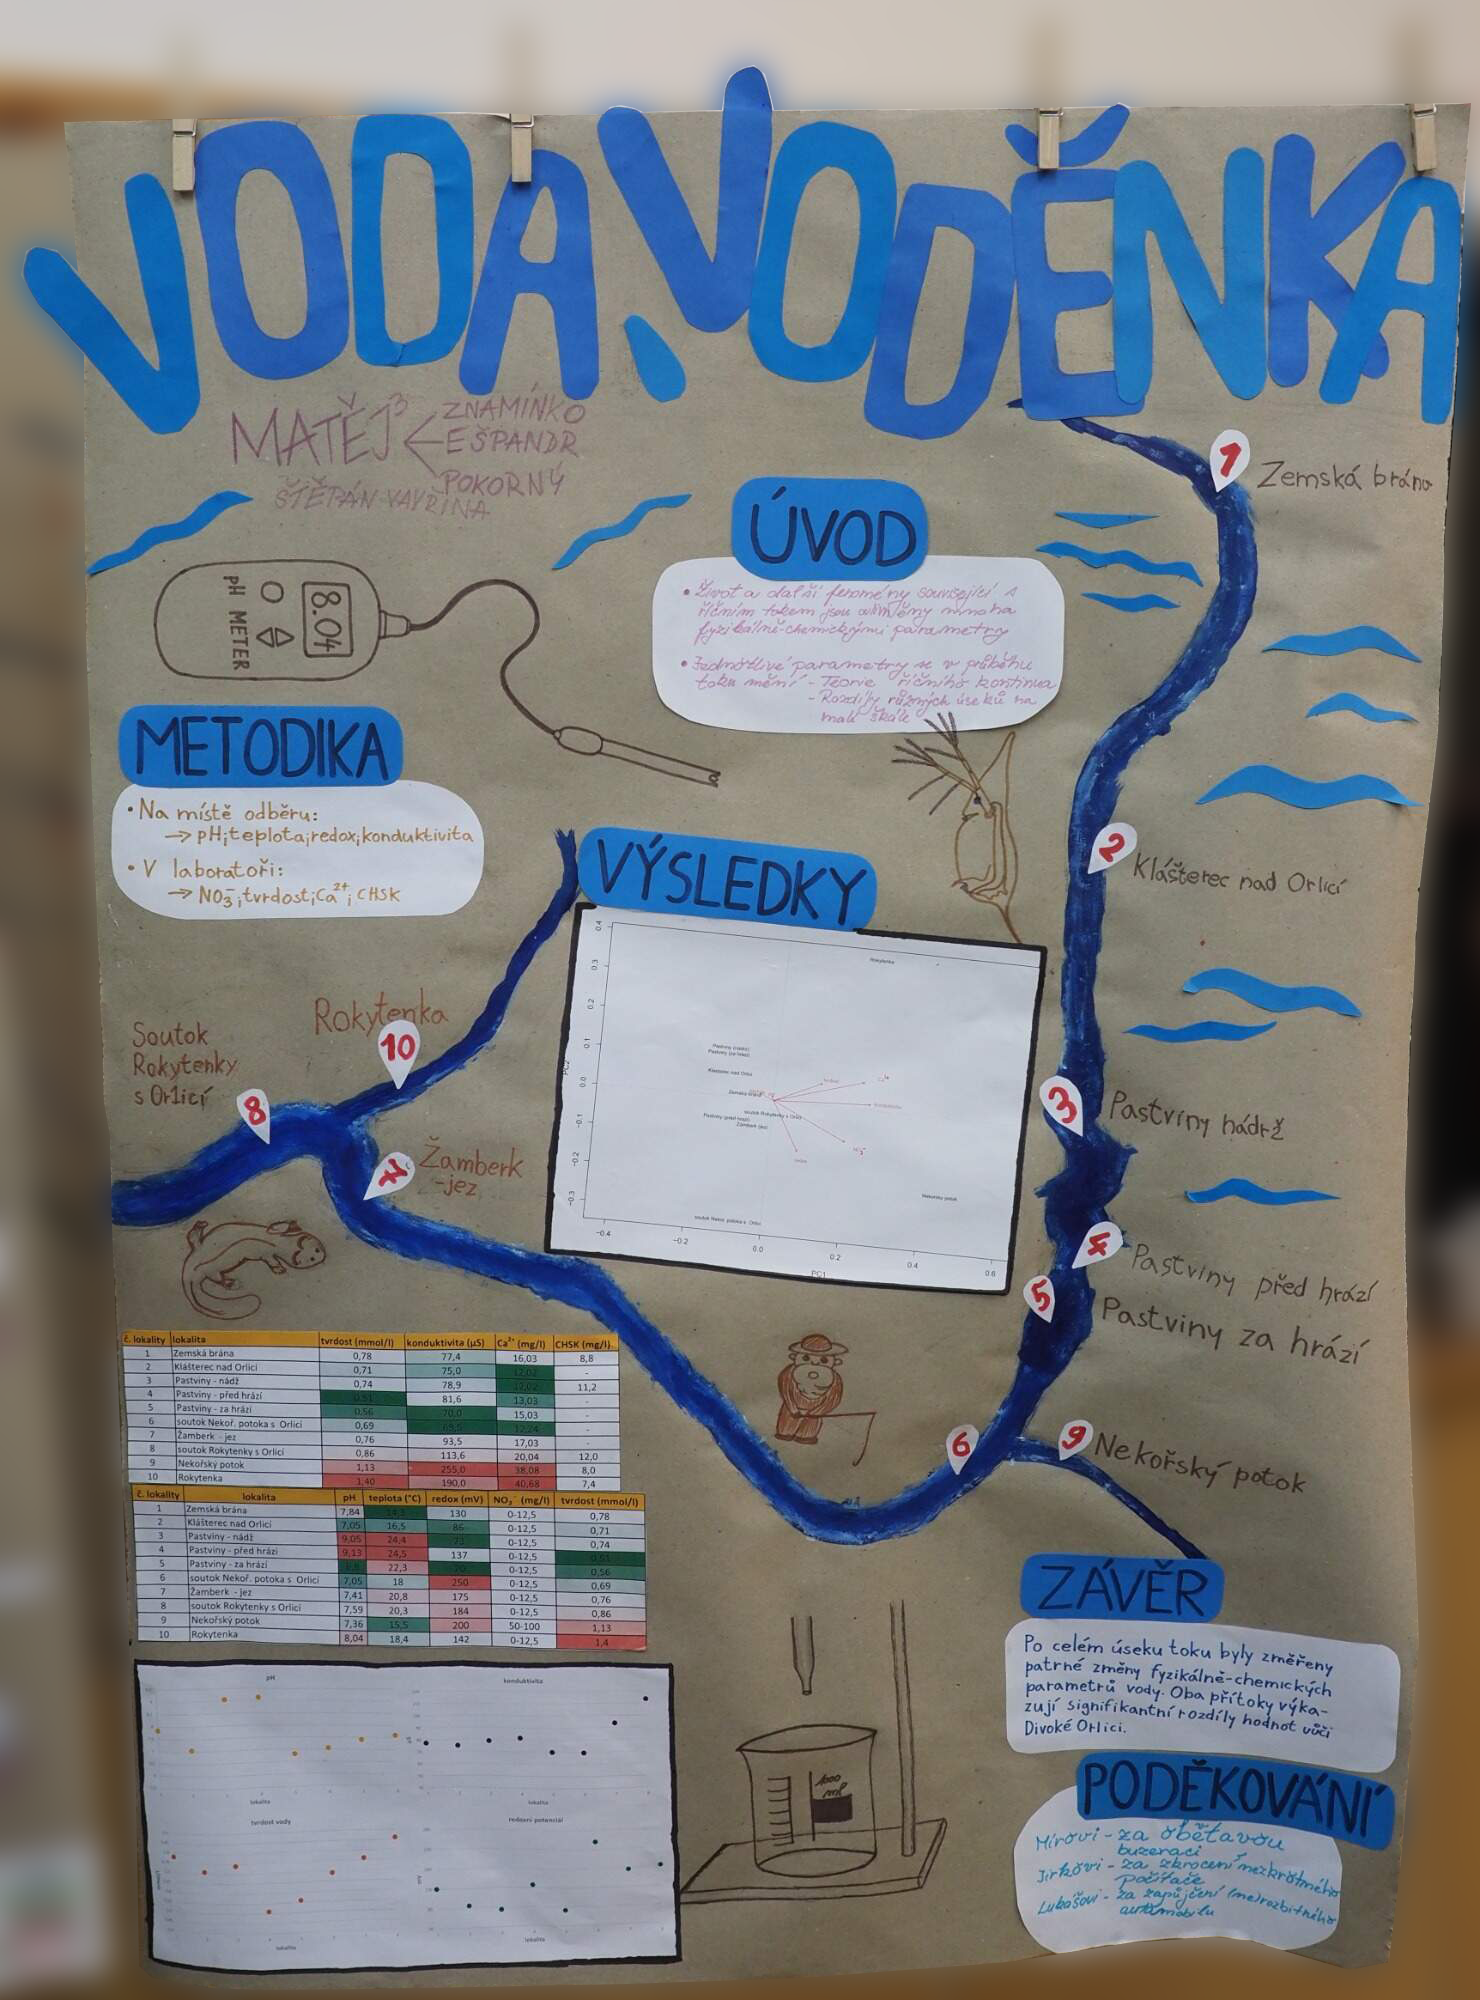 VODA, VODĚNKA
MATĚJ³ ZNAMÍNKO
EŠPANDR
POKORNÝ
ŠTĚPÁN VAVŘINA
1 Zemská brána
ÚVOD
• Život a další fenomény související s
říčním tokem jsou ovlivněny mnoha
fyzikálně-chemickými parametry
• Jednotlivé parametry se v průběhu
toku mění - Teorie říčního kontinua
- Rozdíly různých úseků na
malé škále
pH METER
8.04
METODIKA
• Na místě odběru:
→ pH; teplota; redox; konduktivita
• V laboratoři:
→ NO₃⁻; tvrdost; Ca²⁺; CHSK
2 Klášterec nad Orlicí
VÝSLEDKY
Rokytenka
Pastviny (nádrž)
Pastviny (za hrází)
Klášterec nad Orlicí
Zemská brána
soutok Rokytenky s Orlicí
Pastviny (před hrází)
Žamberk (jez)
Nekořský potok
soutok Nekoř. potoka s Orlicí
0.4
0.3
0.2
0.1
0.0
-0.1
-0.2
-0.3
-0.4
-0.2
0.0
0.2
0.4
0.6
PC1
PC2
Rokytenka
10
Soutok
Rokytenky
s Orlicí
8
7 Žamberk
-jez
3 Pastviny nádrž
4 Pastviny před hrází
5 Pastviny za hrází
6
9 Nekořský potok
č. lokality lokalita tvrdost (mmol/l) konduktivita (µS) Ca²⁺ (mg/l) CHSK (mg/l)
1 Zemská brána 0,78 77,4 16,03 8,8
2 Klášterec nad Orlicí 0,71 75,0 12,02 -
3 Pastviny - nádž 0,74 78,9 12,02 11,2
4 Pastviny - před hrází 0,51 81,6 13,03 -
5 Pastviny - za hrází 0,56 70,0 15,03 -
6 soutok Nekoř. potoka s Orlicí 0,69 69,5 12,24 -
7 Žamberk - jez 0,76 93,5 17,03 -
8 soutok Rokytenky s Orlicí 0,86 113,6 20,04 12,0
9 Nekořský potok 1,13 255,0 38,08 8,0
10 Rokytenka 1,40 190,0 40,68 7,4
č. lokality lokalita pH teplota (°C) redox (mV) NO₃⁻ (mg/l) tvrdost (mmol/l)
1 Zemská brána 7,84 130 0-12,5 0,78
2 Klášterec nad Orlicí 7,05 16,5 86 0-12,5 0,71
3 Pastviny - nádž 9,05 24,4 0-12,5 0,74
4 Pastviny - před hrází 9,13 24,5 137 0-12,5 0,51
5 Pastviny - za hrází 22,3 0-12,5 0,56
6 soutok Nekoř. potoka s Orlicí 7,05 18 250 0-12,5 0,69
7 Žamberk - jez 7,41 20,8 175 0-12,5 0,76
8 soutok Rokytenky s Orlicí 7,59 20,3 184 0-12,5 0,86
9 Nekořský potok 7,36 15,5 200 50-100 1,13
10 Rokytenka 8,04 18,4 142 0-12,5 1,4
pH
lokalita
konduktivita
lokalita
tvrdost vody
lokalita
redoxní potenciál
lokalita
1000
ml
ZÁVĚR
Po celém úseku toku byly změřeny
patrné změny fyzikálně-chemických
parametrů vody. Oba přítoky výka-
zují signifikantní rozdíly hodnot vůči
Divoké Orlici.
PODĚKOVÁNÍ
Mírovi - za obětavou
buzeraci
Jirkovi - za zkrocení nezkrotného
počítače
Lukášovi - za zapůjčení (ne)rozbitného
automobilu